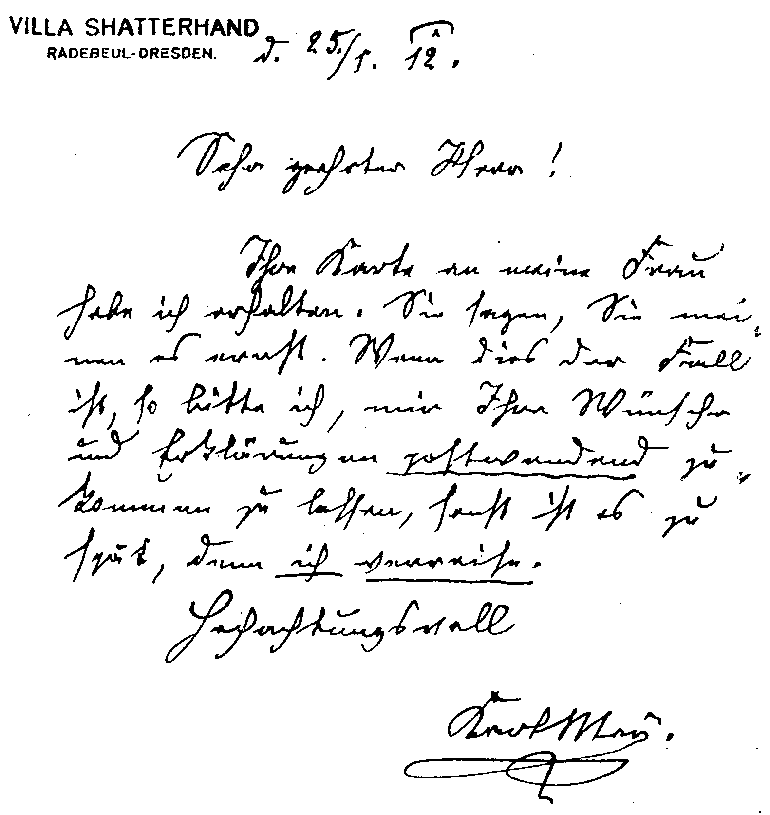 VILLA SHATTERHAND
RADEBEUL-DRESDEN.
d. 25./1. 12.
Sehr geehrter Herr!
Ihre Karte an meine Frau
habe ich erhalten. Sie sagen, Sie mei-
nen es ernst. Wenn dies der Fall
ist, so bitte ich, mir Ihre Wünsche
und Erklärungen postwendend zu-
kommen zu lassen, sonst ist es zu
spät, denn ich verreise.
Hochachtungsvoll
Karl May.